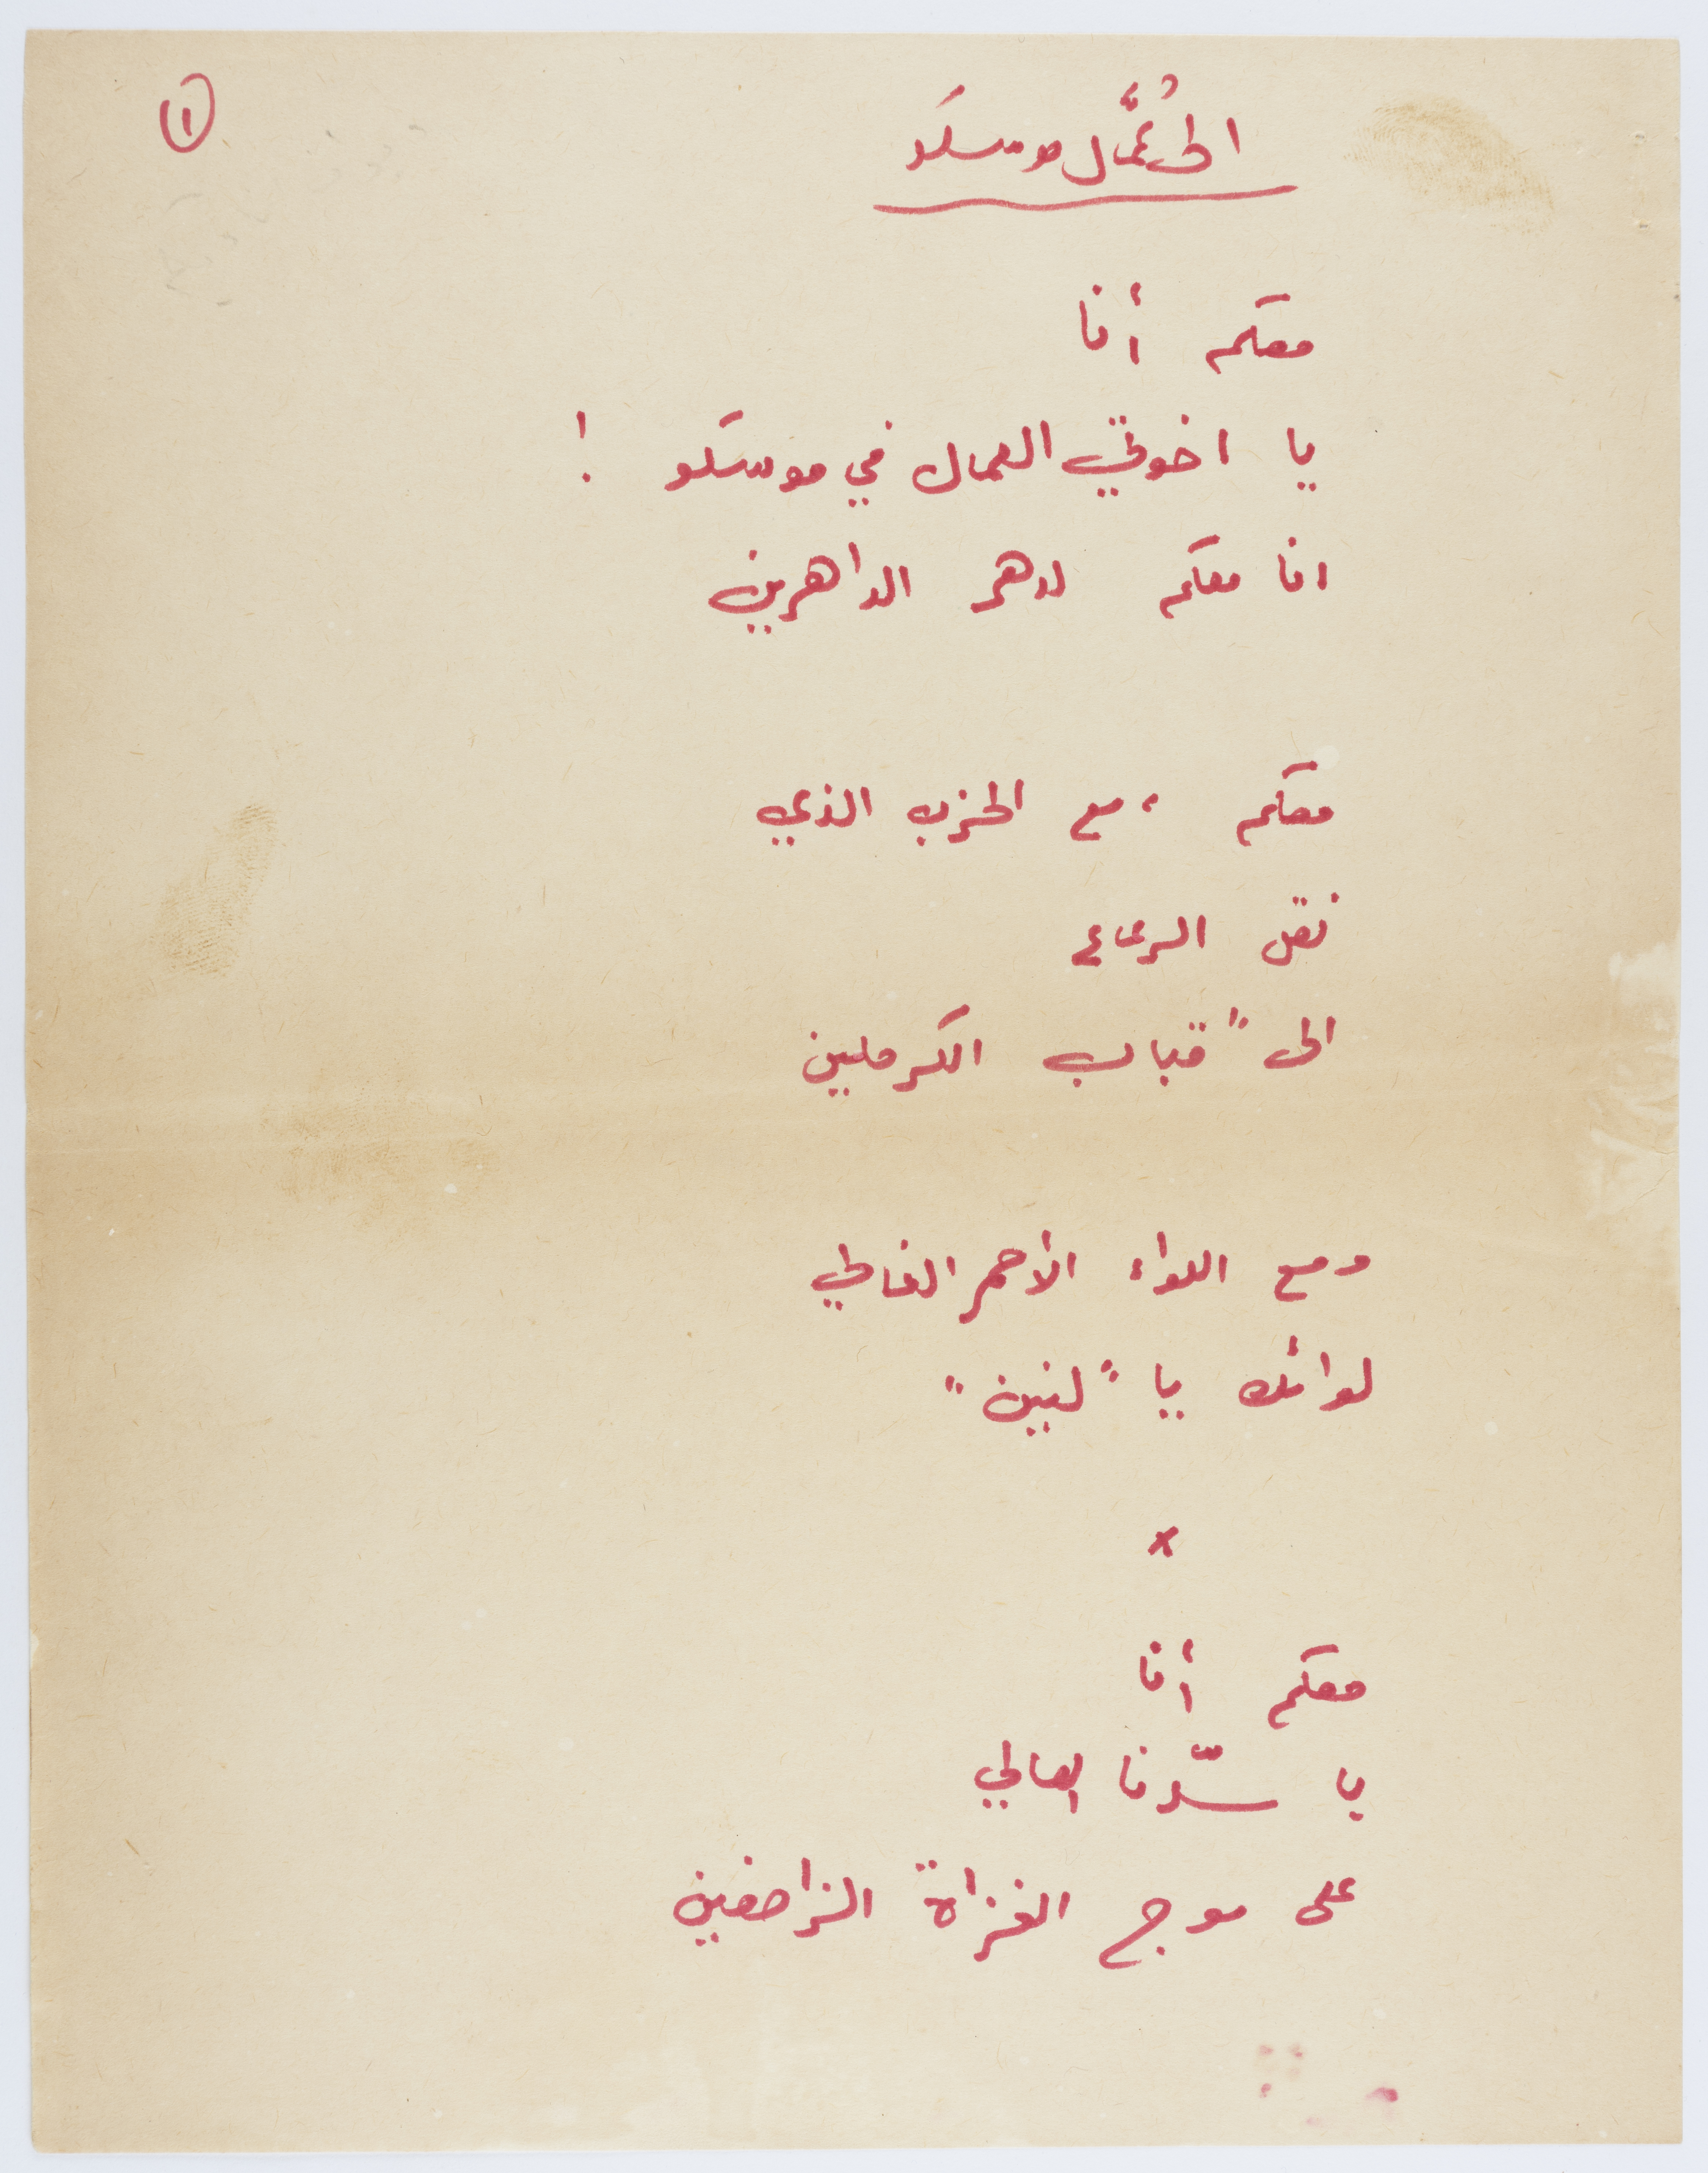 ١
الى عُمَّال موسكو
معكم أنا
يا اخوتي العمال في موسكو !
انا معكم لدهر الداهرين
معكم ، مع الحزب الذي
نقل الرعاع
الى " قباب الكرملين
ومع اللواء الأحمر الغالي
لوائك يا "لنين"
x
معكم أنا
يا سدّنا العالي
على موج الغزاة الزاحفين